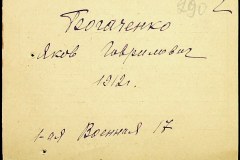 290
Богаченко
Яков Гаврилович
1912г.
1-ая Военная 17